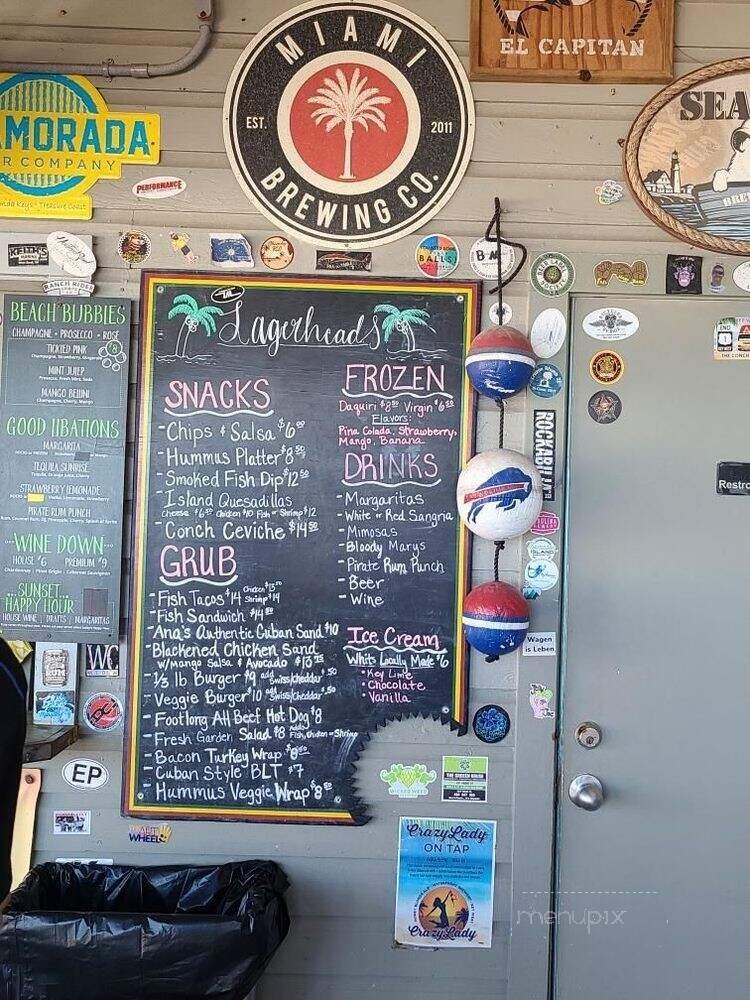 MIAMI
EST. 2011
BREWING CO.
EL CAPITAN
MORADA
R COMPANY
SEA
BRE
PERFORMANCE
RANCH RIDER
BALLS
BEACH BUBBIES
CHAMPAGNE - PROSECCO - ROSÉ
TICKLED PINK
Champagne, Strawberry,
MINT JULEP
Prosecco, Fresh Mint, Soda
MANGO BELLINI
Champagne, Cherry, Mango
GOOD LIBATIONS
MARGARITA
TEQUILA SUNRISE
Tequila, Orange Juice, Cherry
STRAWBERRY LEMONADE
PIRATE RUM PUNCH
...WINE DOWN...
HOUSE $6 PREMIUM $9
Chardonnay - Pinot Grigio - Cabernet Sauvignon
...SUNSET...
HAPPY HOUR
HOUSE WINE | DRAFTS | MARGARITAS
Lagerheads
SNACKS
-Chips & Salsa $6
-Hummus Platter $8
-Smoked Fish Dip $12
-Island Quesadillas
Cheese $6 Chicken $10 Fish or Shrimp $12
-Conch Ceviche $14
GRUB
-Fish Tacos $14 Chicken $13 Shrimp $14
-Fish Sandwich $14
-Ana's Authentic Cuban Sand $10
-Blackened Chicken Sand
w/Mango Salsa & Avocado $10
-1/3 lb Burger $9 add Swiss/Cheddar .50
-Veggie Burger $10 add Swiss/Cheddar .50
-Footlong All Beef Hot Dog $8
-Fresh Garden Salad $8 add Fish, Chicken or Shrimp
-Bacon Turkey Wrap $8
-Cuban Style BLT $7
-Hummus Veggie Wrap $8
FROZEN
Daquiri $8 Virgin $6
Flavors:
Pina Colada, Strawberry,
Mango, Banana
DRINKS
-Margaritas
-White or Red Sangria
-Mimosas
-Bloody Marys
-Pirate Rum Punch
-Beer
-Wine
Ice Cream
Whits Locally Made $6
• Key Lime
• Chocolate
• Vanilla
ROCKABILLY
Restro
Wagen
is Leben
END
1
WC
EP
WHEELS
WICKED WEED
CrazyLady
ON TAP
CrazyLady
menupix